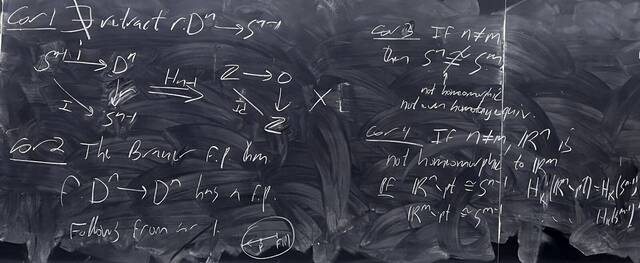 Cor 1 ∄ retract r: Dⁿ → Sⁿ⁻¹
Sⁿ⁻¹ →i Dⁿ
I ↓ Sⁿ⁻¹
Hn-1 ⇒
Z → 0
Id ↓ Z
X
Cor 2 The Brouwer F.P. thm
f: Dⁿ → Dⁿ has a f.p.
Follows from cor 1.
Cor 3 If n≠m
then Sⁿ ≄ Sᵐ
not homeomorphic
not even homotopy equiv.
Cor 4 If n≠m, ℝⁿ is
not homeomorphic to ℝᵐ
Pf ℝⁿ∖pt ≅ Sⁿ⁻¹ Hₖ(ℝⁿ∖pt) = Hₖ(Sⁿ⁻¹)
ℝᵐ∖pt ≅ Sᵐ⁻¹